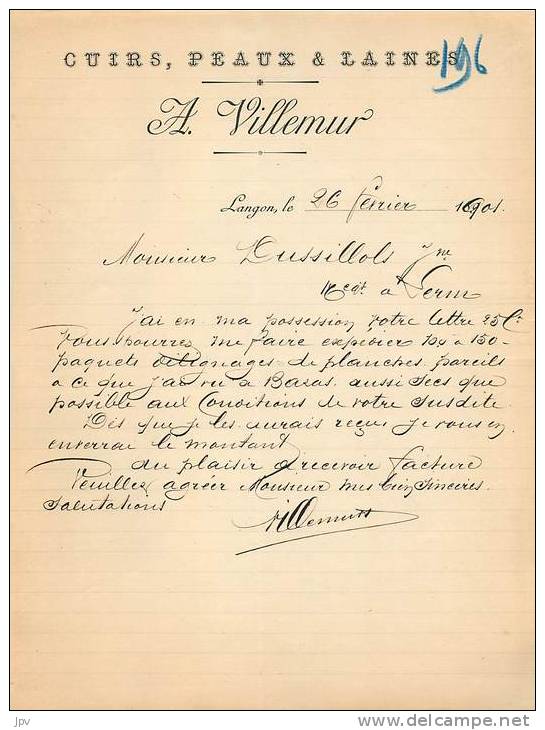 CUIRS, PEAUX & LAINES
196
A. Villemur
Langon, le 26 février 1901.
Monsieur Dussillols Jne
Negt a Lerm
J'ai en ma possession votre lettre 25 Ct
Vous pourrez me faire expédier à 150
paquets délignages de planches pareils
a ce que j'ai vu a Bazas aussi secs que
possible aux Conditions de votre susdite
Dès que je les aurais reçus je vous en
enverrai le montant
du plaisir d recevoir facture
Veuillez agréer Monsieur mes bien sincères
salutations
Villemur
jpv
© delcampe.net